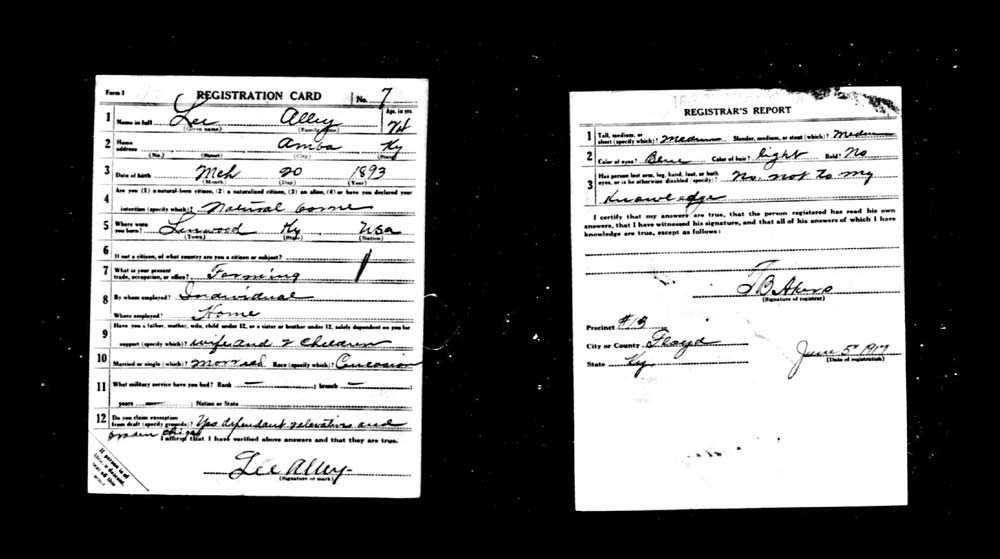 Form 1 REGISTRATION CARD No. 7
1 Name in full Lee Alley Age, in yrs. 24
(Given name) (Family name)
2 Home address Amba Ky
(No.) (Street) (City) (State)
3 Date of birth Mch 20 1893
(Month) (Day) (Year)
Are you (1) a natural-born citizen, (2) a naturalized citizen, (3) an alien, (4) or have you declared your
4 intention (specify which)? Natural borne
5 Where were you born? Ky USA
(Town) (State) (Nation)
6 If not a citizen, of what country are you a citizen or subject?
7 What is your present trade, occupation, or office? Farming
8 By whom employed? Individual
Where employed? Home
9 Have you a father, mother, wife, child under 12, or a sister or brother under 12, solely dependent on you for
support (specify which)? wife and 2 children
10 Married or single (which)? married Race (specify which)? Caucasian
11 What military service have you had? Rank — ; branch —
years — ; Nation or State
12 Do you claim exemption from draft (specify grounds)? Yes dependant relatives and
I affirm that I have verified above answers and that they are true.
Lee Alley
(Signature or mark)
If person is of
REGISTRAR'S REPORT
1 Tall, medium, or short (specify which)? Medium Slender, medium, or stout (which)? Medium
2 Color of eyes? Blue Color of hair? light Bald? No
3 Has person lost arm, leg, hand, foot, or both eyes, or is he otherwise disabled (specify)? No. not to my
knowledge
I certify that my answers are true, that the person registered has read his own
answers, that I have witnessed his signature, and that all of his answers of which I have
knowledge are true, except as follows:
J B Akers
(Signature of registrar)
Precinct #13
City or County Floyd
State Ky June 5" 1917
(Date of registration)